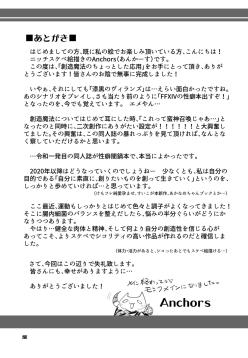 ■あとがき■
はじめましての方、既に私の絵でお楽しみ頂いている方、こんにちは！
ニッチスケベ絵描きのAnchors(あんかーす)です。
この度は、「創造魔法のちょっとした応用」をお手にとって頂き、ありがとうございます！皆さんのお陰で無事に完成しました！
いやぁ、それにしても「漆黒のヴィランズ」は…えらい面白かったですね。
あのシナリオをプレイし、さも当たり前のように「FFXIVの性癖本出すぞ！」
となったのを、今でも覚えています。 エメやん…
創造魔法についてはじめて耳にした時、「これって蛮神召喚じゃぁ…」と
なったのと同時に、二次創作においてありがたい設定が！！！！！！と大興奮し
てました。その興奮を、この同人誌の薄っぺらを見て頂ければ幸いです！
…令和一発目の同人誌が性癖闇鍋本で、本当によかったです。
2020年以降はどうなっていくのでしょうね… 少なくとも、私は自分の
目的である「自分に素直に、創りたいものを創って生きていく」というのを
ここ最近、運動もしっかりとはじめて色々と調子がよくなってきました！
そこに腸内細菌のバランスを整えだしたら、悩みの半分ぐらいがどこかに
なりつつあります。
やはり…健全な肉体と精神、そして何より自分が創っていて楽しめること
が、よりスケベでシコリティの高い作品が作れるのだと確信しました。
さて、今回はこの辺りで失礼致します。
皆さんにも、幸せがありますように…
ありがとうございました！
Anchors